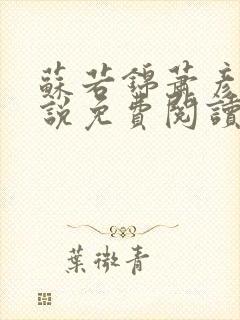 蘇若錦蕭彥
說免費閱讀
葉微青